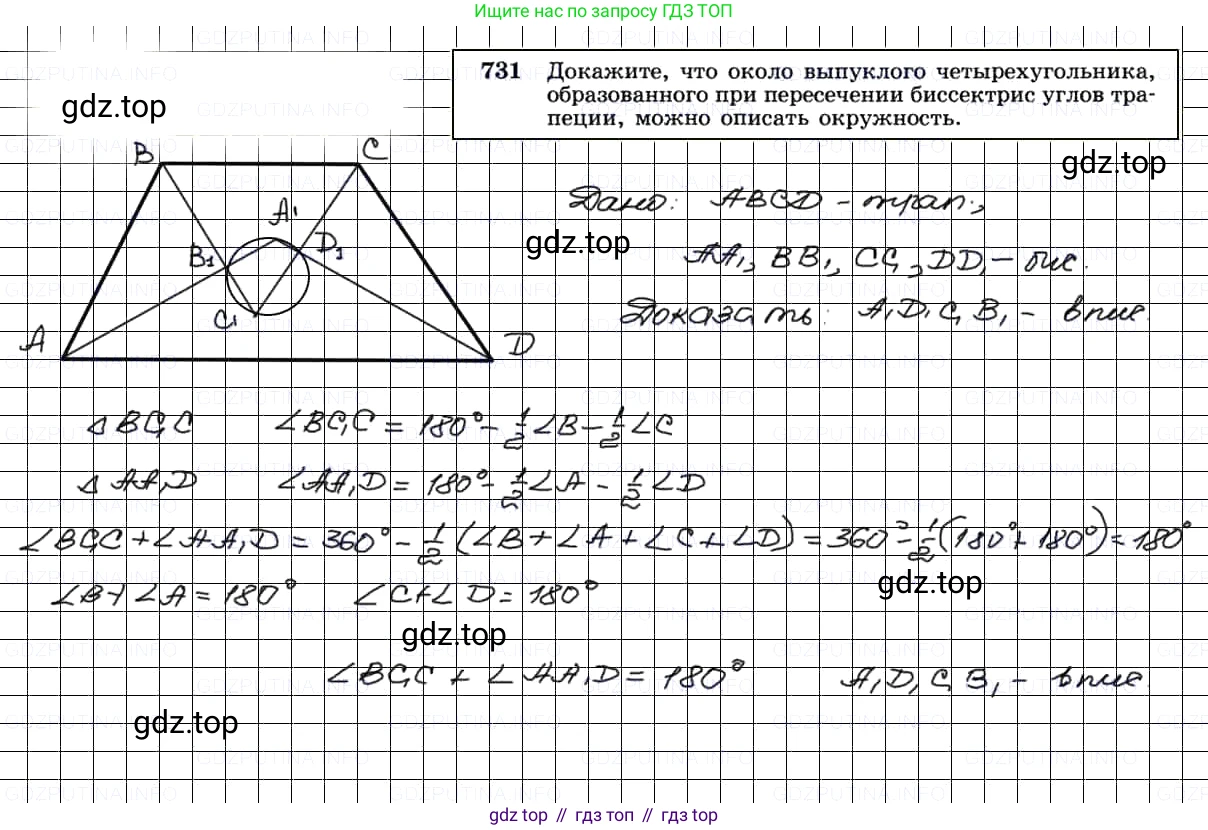 Ищите нас по запросу ГДЗ ТОП
731 Докажите, что около выпуклого четырехугольника,
образованного при пересечении биссектрис углов тра-
пеции, можно описать окружность.
gdz.top
gdz.top
B C
A₁
B₁ D₁
C₁
A D
Дано: ABCD - трап.,
gdz.top
AA₁, BB₁, CC₁, DD₁ - бис.
Доказать: A₁D₁C₁B₁ - впис.
△BC₁C ∠BC₁C = 180° - 1/2∠B - 1/2∠C
△AA₁D ∠AA₁D = 180° - 1/2∠A - 1/2∠D
∠BC₁C + ∠AA₁D = 360° - 1/2(∠B + ∠A + ∠C + ∠D) = 360° - 1/2(180° + 180°) = 180°
gdz.top
∠B + ∠A = 180° ∠C + ∠D = 180°
gdz.top
∠BC₁C + ∠AA₁D = 180° A₁D₁C₁B₁ - впис.
gdz.top
gdz top // гдз топ // гдз top
GDZPUTINA.INFO